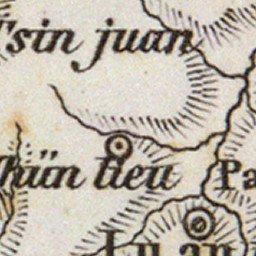 Tsin juan
hün tieu
Pa
Lu an